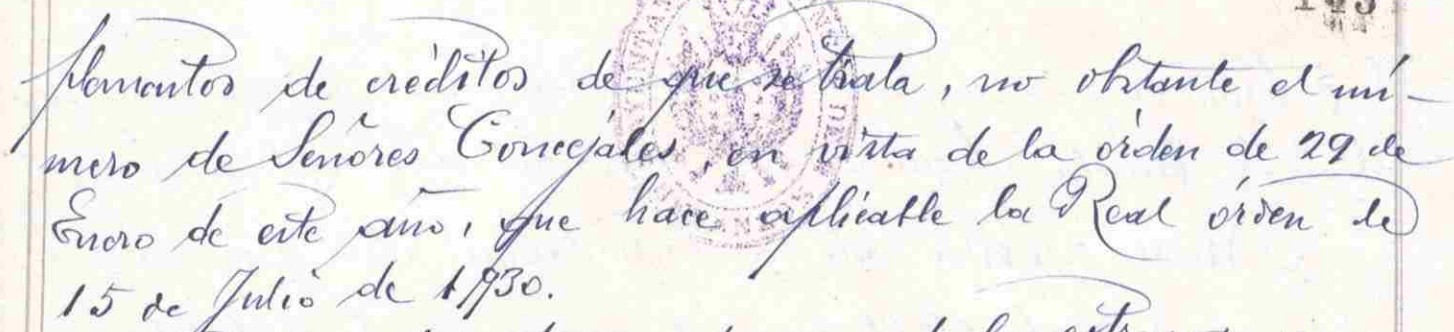 plementos de créditos de que se trata, no obstante el nú-
mero de Señores Concejales, en vista de la órden de 29 de
Enero de este año, que hace aplicable la Real órden de
15 de Julio de 1930.